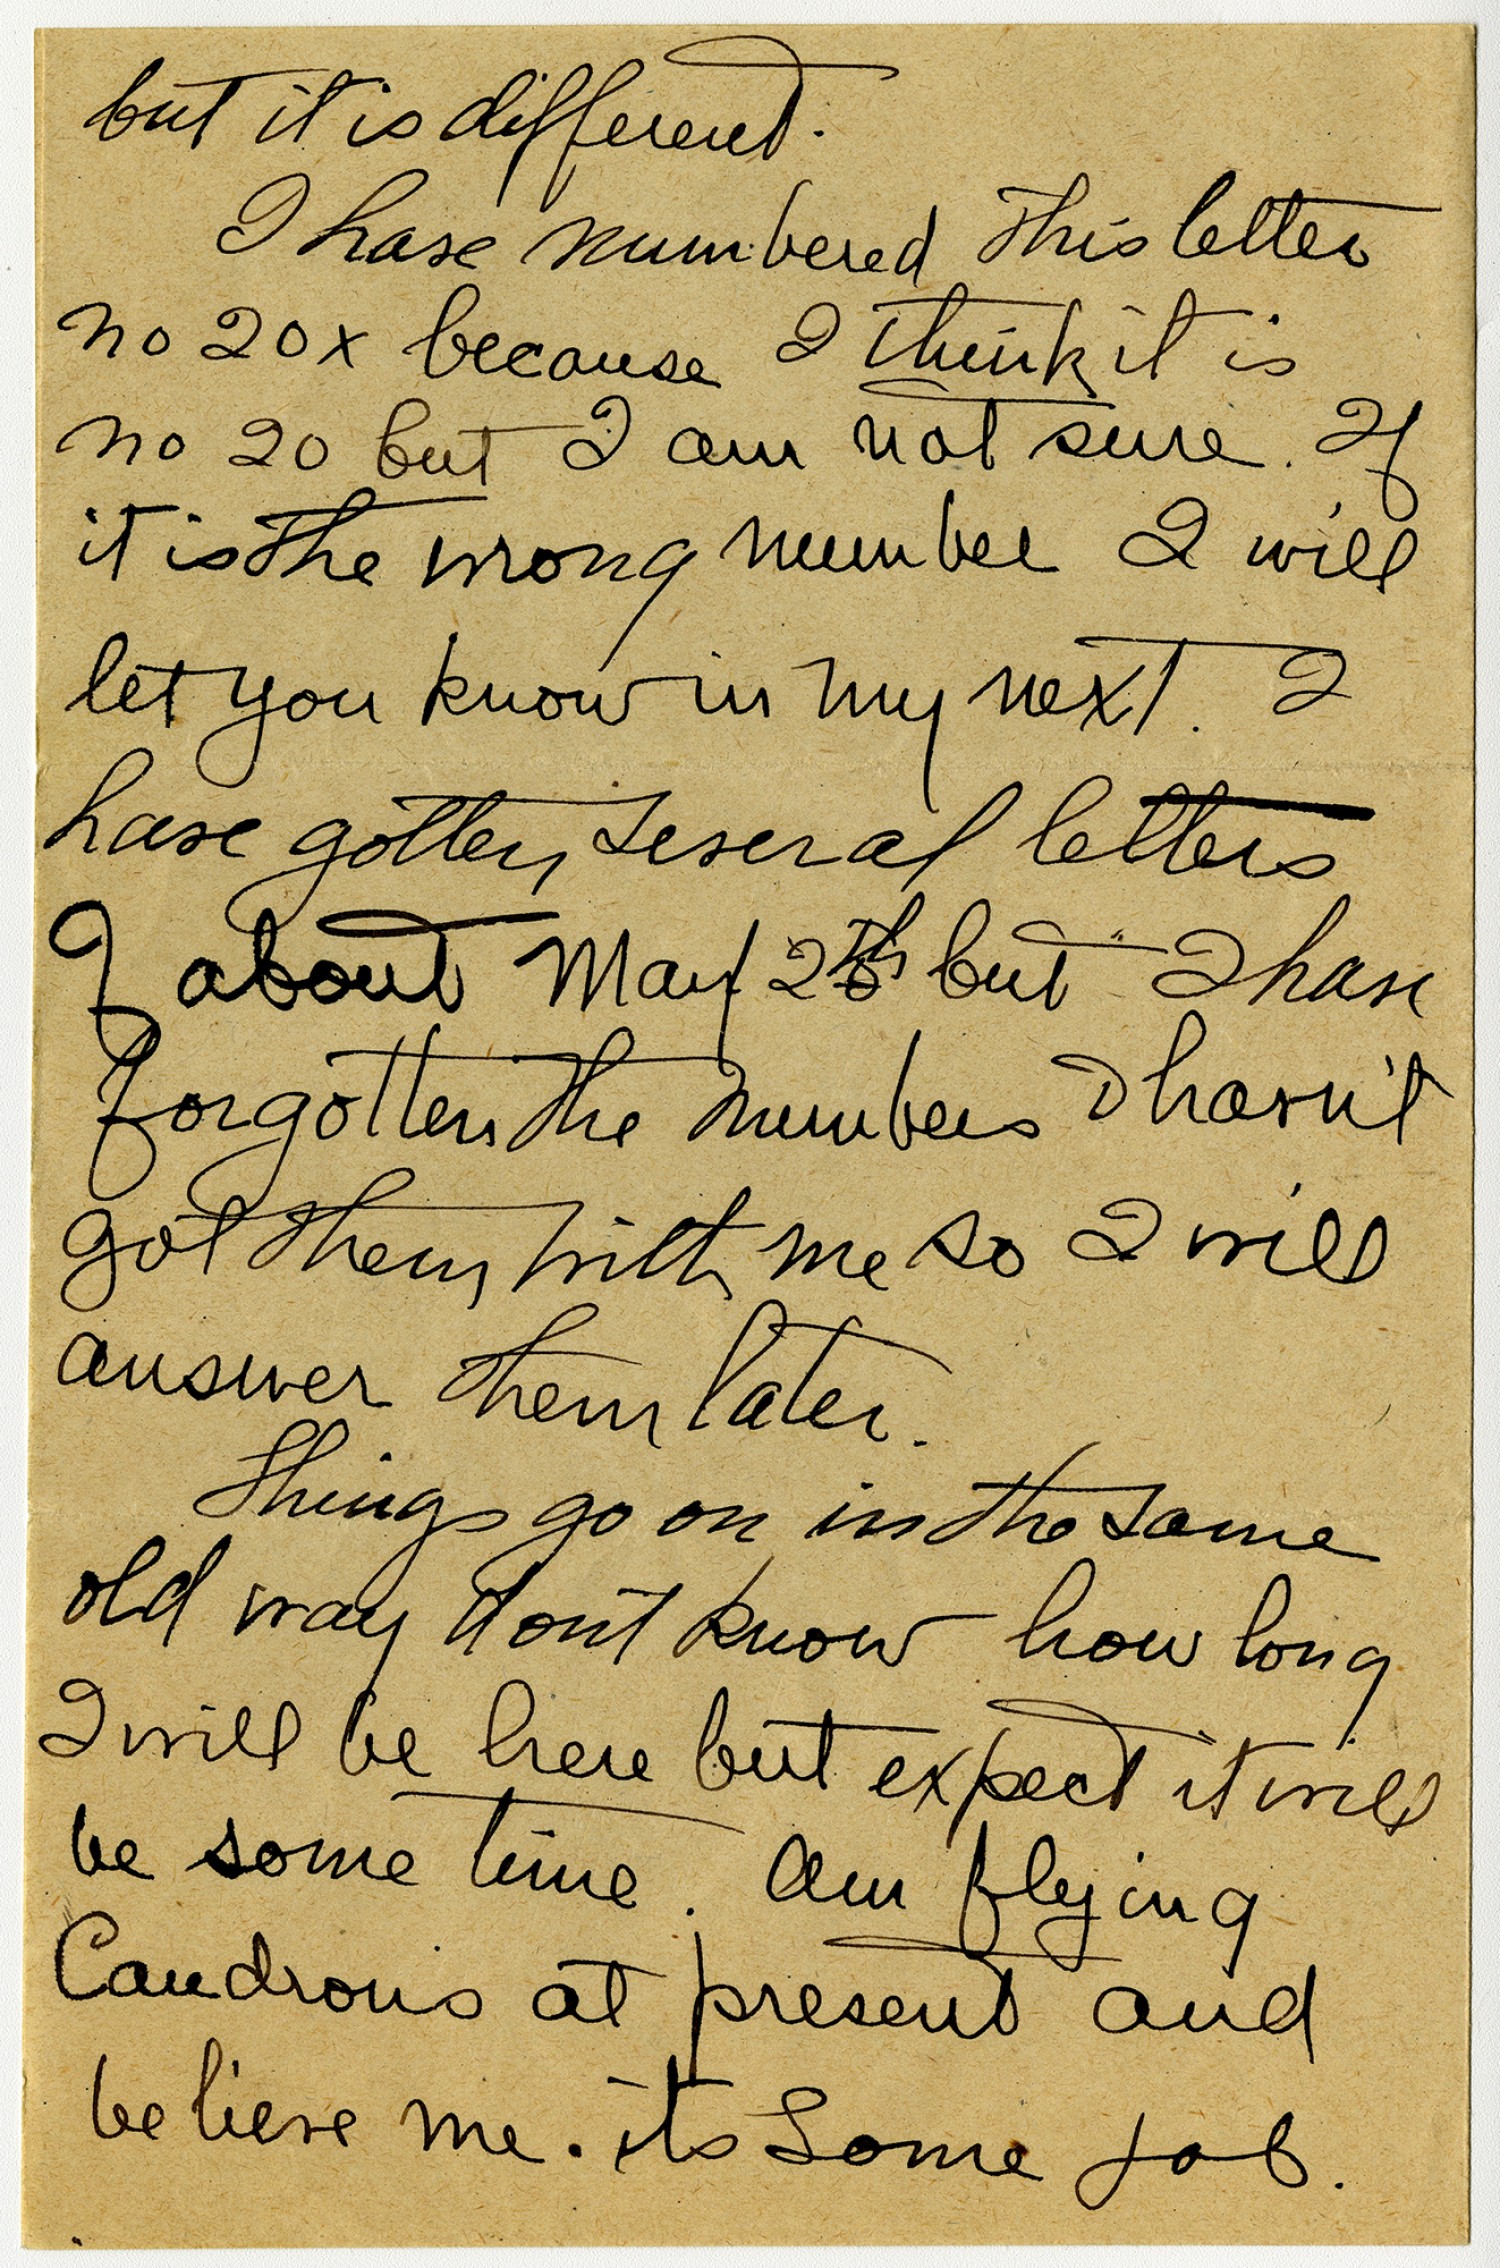 but it is different.
I have numbered this letter
no 20x because I think it is
no 20 but I am not sure. If
it is the wrong number I will
let you know in my next. I
have gotten several letters
of about May 26th but I have
forgotten the numbers I havn't
got them with me so I will
answer them later.
Things go on in the same
old way don't know how long
I will be here but expect it will
be some time. Am flying
Caudrons at present and
believe me. its some job.